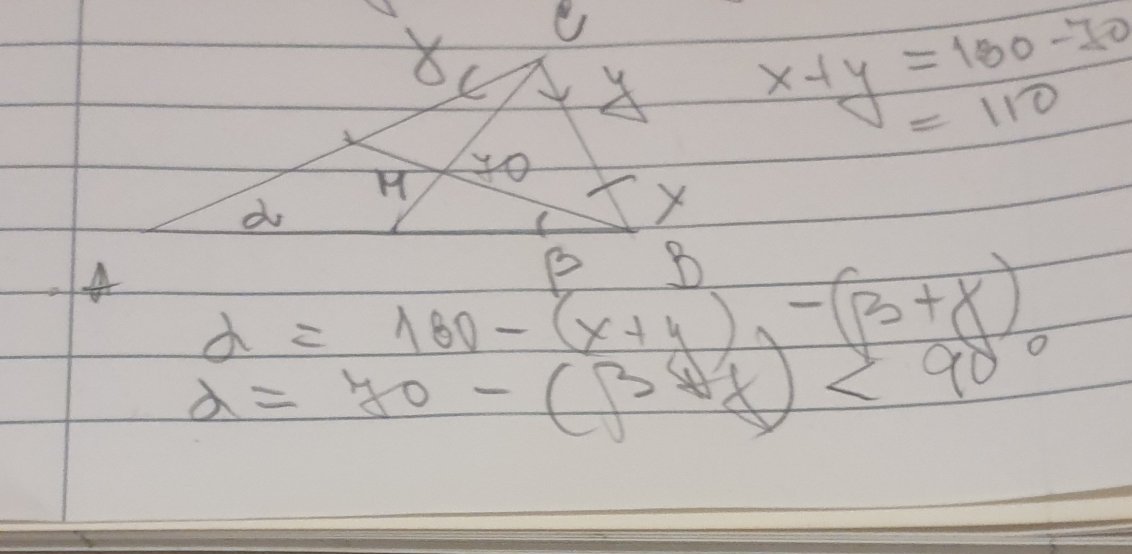 C
γ y x+y = 180-70
= 110
H 70
α x
A β B
α = 180 - (x+y) - (β+γ)
α = 70 - (β+γ) < 90°